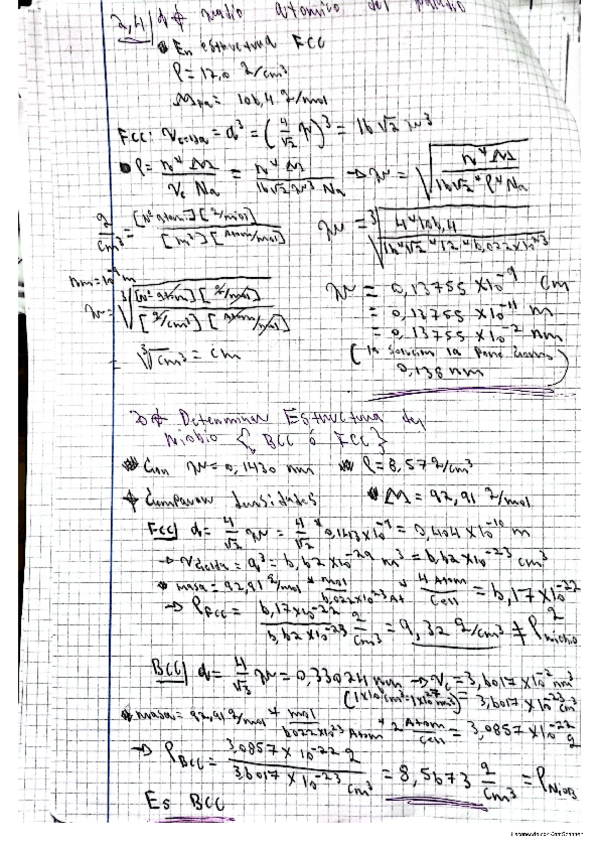 2,4/ d¢ radio atomico del paladio
En estructura FCC
ρ = 12,0 g/cm³
M_Pd = 106,4 g/mol
FCC: V_celda = a³ = (4/√2 r)³ = 16√2 r³
ρ = n* M / V_c Na = n* M / 16√2 r³ Na → r = √ n* M / 16√2 * ρ* Na
g/cm³ = [Nº atom][g/mol] / [m³][Atom/mol]
r = ³√ 4*106,4 / 16*√2 *12* 6,022x10²³
nm = 10⁻⁹ m
r = ³√ [Nº atom][g/mol] / [g/cm³][atom/mol]
r = 0,13755 x10⁻⁹ cm
= 0,13755 x10⁻¹¹ m
= ³√cm³ = cm
= 0,13755 x10⁻² nm
(la solucion la pone
0,138 nm
Determinar Estructura del
Niobio { BCC ó FCC }
Con r = 0,1430 nm ρ = 8,57 g/cm³
Comparar densidades M = 92,91 g/mol
FCC| a = 4/√2 r = 4/√2 * 0,143x10⁻⁹ = 0,404 x10⁻¹⁰ m
→ V_celda = a³ = 6,62 x10⁻²⁹ m³ = 6,62 x10⁻²³ cm³
masa = 92,91 g/mol * mol / 6,022x10²³ At * 4 Atom / Cell = 6,17 x10⁻²² g
→ ρ_FCC = 6,17x10⁻²² / 6,62 x10⁻²³ g/cm³ = 9,32 g/cm³ ≠ ρ_niobio
BCC| a = 4/√3 r = 0,33024 nm → V_c = 3,6017 x10⁻² nm³
(1x10⁶cm³ = 1x10²⁷nm³) = 3,6017 x10⁻²³ cm³
masa = 92,91 g/mol * mol / 6022x10²³ Atom * 2 Atom / Cell = 3,0857 x10⁻²² g
→ ρ_BCC = 3,0857 x 10⁻²² g / 3,6017 x 10⁻²³ cm³ = 8,5673 g/cm³ = ρ_Niob
Es BCC